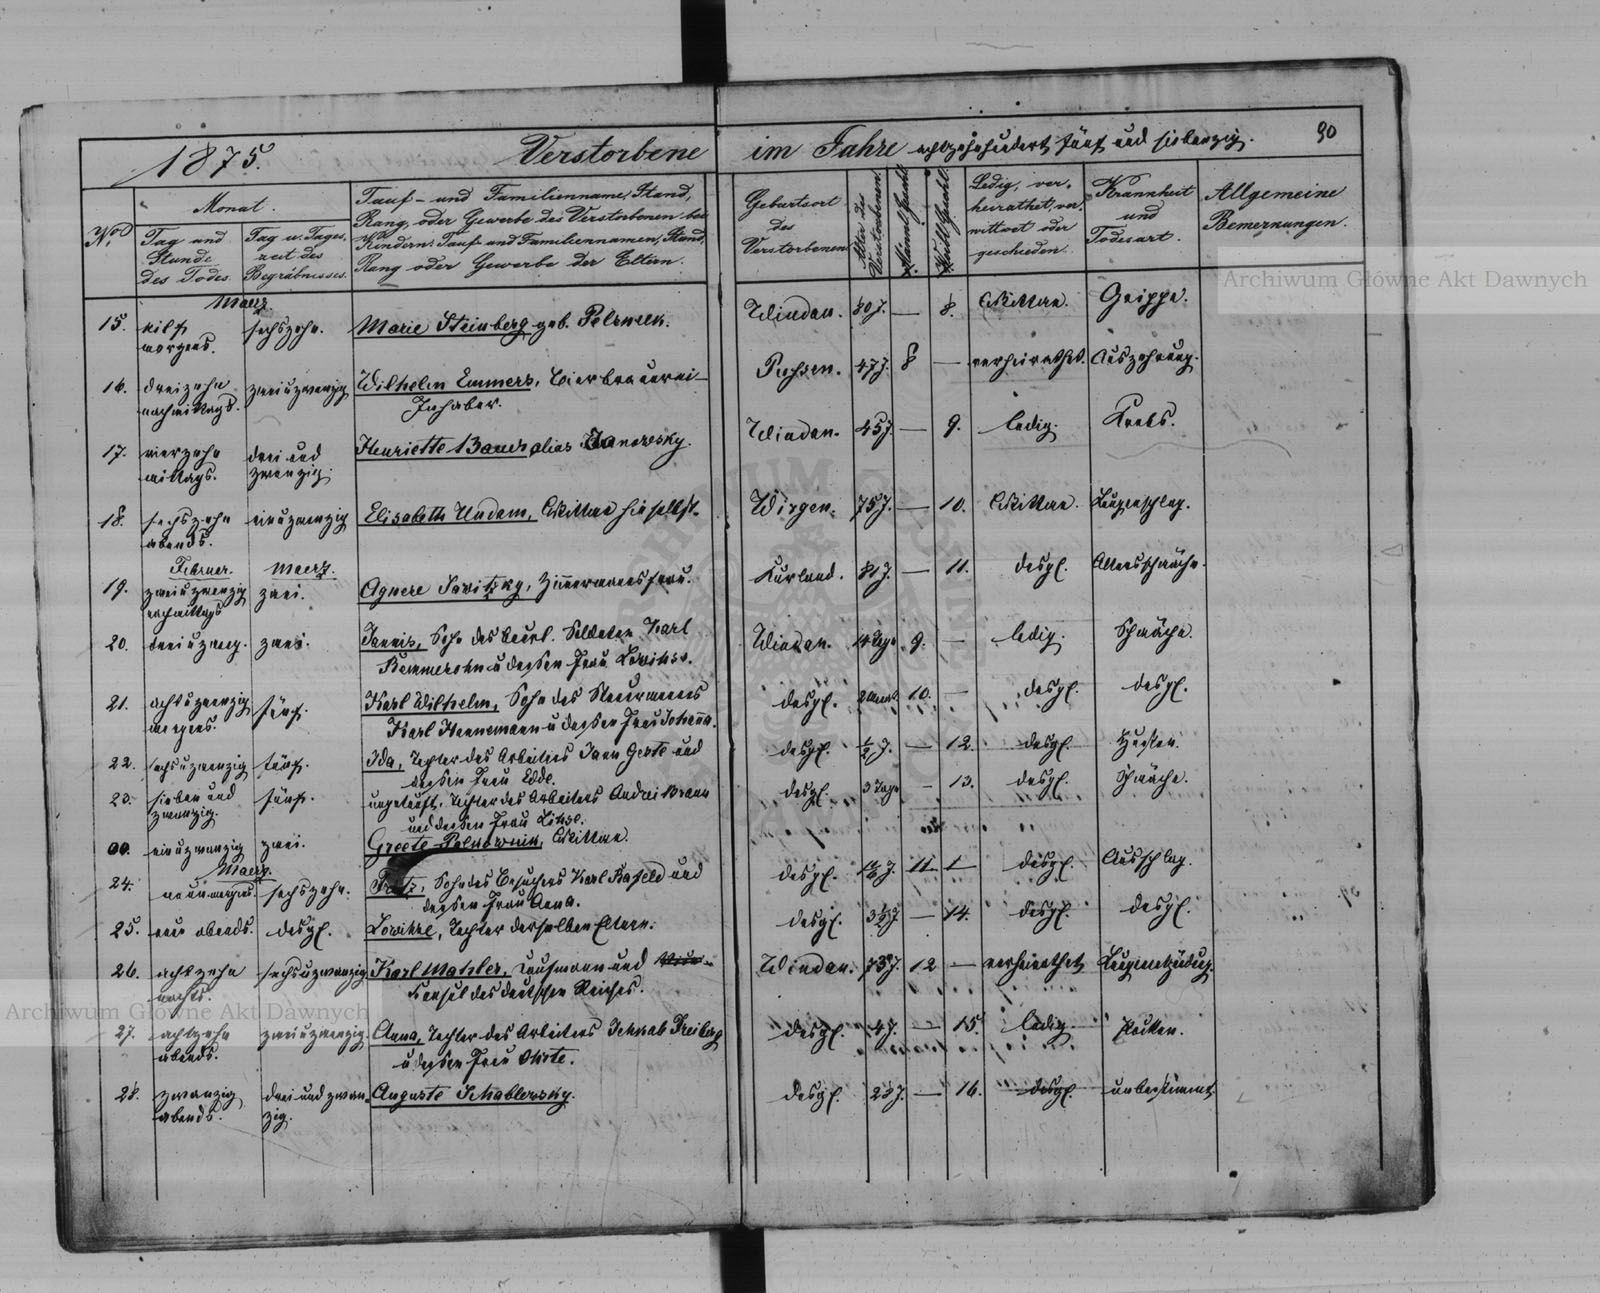 1875.
Verstorbene im Jahre achtzehnhundert fünf und siebenzig.
90
No.
Monat.
Tag und Stunde des Todes.
Tag u. Tageszeit des Begräbnisses.
Tauf- und Familienname, Stand,
Rang oder Gewerbe des Verstorbenen bei
Kindern: Tauf- und Familiennamen, Stand,
Rang oder Gewerbe der Eltern.
Geburtsort des Verstorbenen
Alter des Verstorbenen.
Männl. Geschl.
Weibl. Geschl.
Ledig, verheirathet, verwittwet oder geschieden.
Krankheit und Todesart.
Allgemeine Bemerkungen.
Maerz.
15. eilf morgens. sechszehn. Marie Steinberg geb. Windau. 80 J. — 8. Wittwe. Grippe.
16. dreizehn nachmittags. zweiuzwanzig Wilhelm Emmers, Bierbrauerei-
Inhaber. Pussen. 47 J. 8 — verheirathet. Auszehrung.
17. vierzehn mittags. drei und zwanzig. Henriette Bauer alias Janoresky. Windau. 45 J. — 9. ledig. Krebs.
18. sechszehn abends. einuzwanzig Elisabeth Undam, Wittwe hieselbst. Wirgen. 75 J. — 10. Wittwe. Lungenschlag.
Februar. Maerz.
19. zweiuzwanzig nachmittags zwei. Agnese Sawitzky, Zimmermannsfrau. Kurland. 81 J. — 11. desgl. Altersschwäche.
20. dreiuzwzg. zwei. Jannis, Sohn des beurl. Soldaten Karl
u dessen Frau Lowihse. Windau. 14 Tage 9. — ledig. Schwäche.
21. achtuzwanzig morgens. fünf. Karl Wilhelm, Sohn des Steuermanns
Karl Hannemann u dessen Frau Johanna. desgl. 2 Monat 10. — desgl. desgl.
22. sechsuzwanzig fünf. Ida, Tochter des Arbeiters Jann Gerte und
dessen Frau Edde. desgl. ½ J. — 12. desgl. Husten.
23. sieben und zwanzig. fünf. ungetauft, Tochter des Arbeiters Andrei Brann
und dessen Frau Lihse. desgl. 3 Tage — 13. desgl. Schwäche.
00. einuzwanzig zwei. Greete Wittwe.
Maerz.
24. neun morgens. sechszehn. Fritz, Sohn des Karl Kafeld und
dessen Frau Anna. desgl. 11 — desgl. Ausschlag.
25. neun abends. desgl. Lowihse, Tochter derselben Eltern. desgl. 3½ J — 14. desgl. desgl.
26. achtzehn nachts. sechsuzwanzig Karl Mahler, Kaufmann und
Konsul des deutschen Reiches. Windau. 73 J. 12 — verheirathet Lungenentzündung.
27. achtzehn abends. zweiuzwanzig. Anna, Tochter des Arbeiters Jehkab Freiberg
u dessen Frau desgl. 4 J. — 15. ledig. Pocken.
28. zwanzig abends. drei und zwanzig. Auguste Schablowsky. desgl. 23 J. — 16. desgl. unbestimmt
Archiwum Główne Akt Dawnych
Archiwum Główne Akt Dawnych